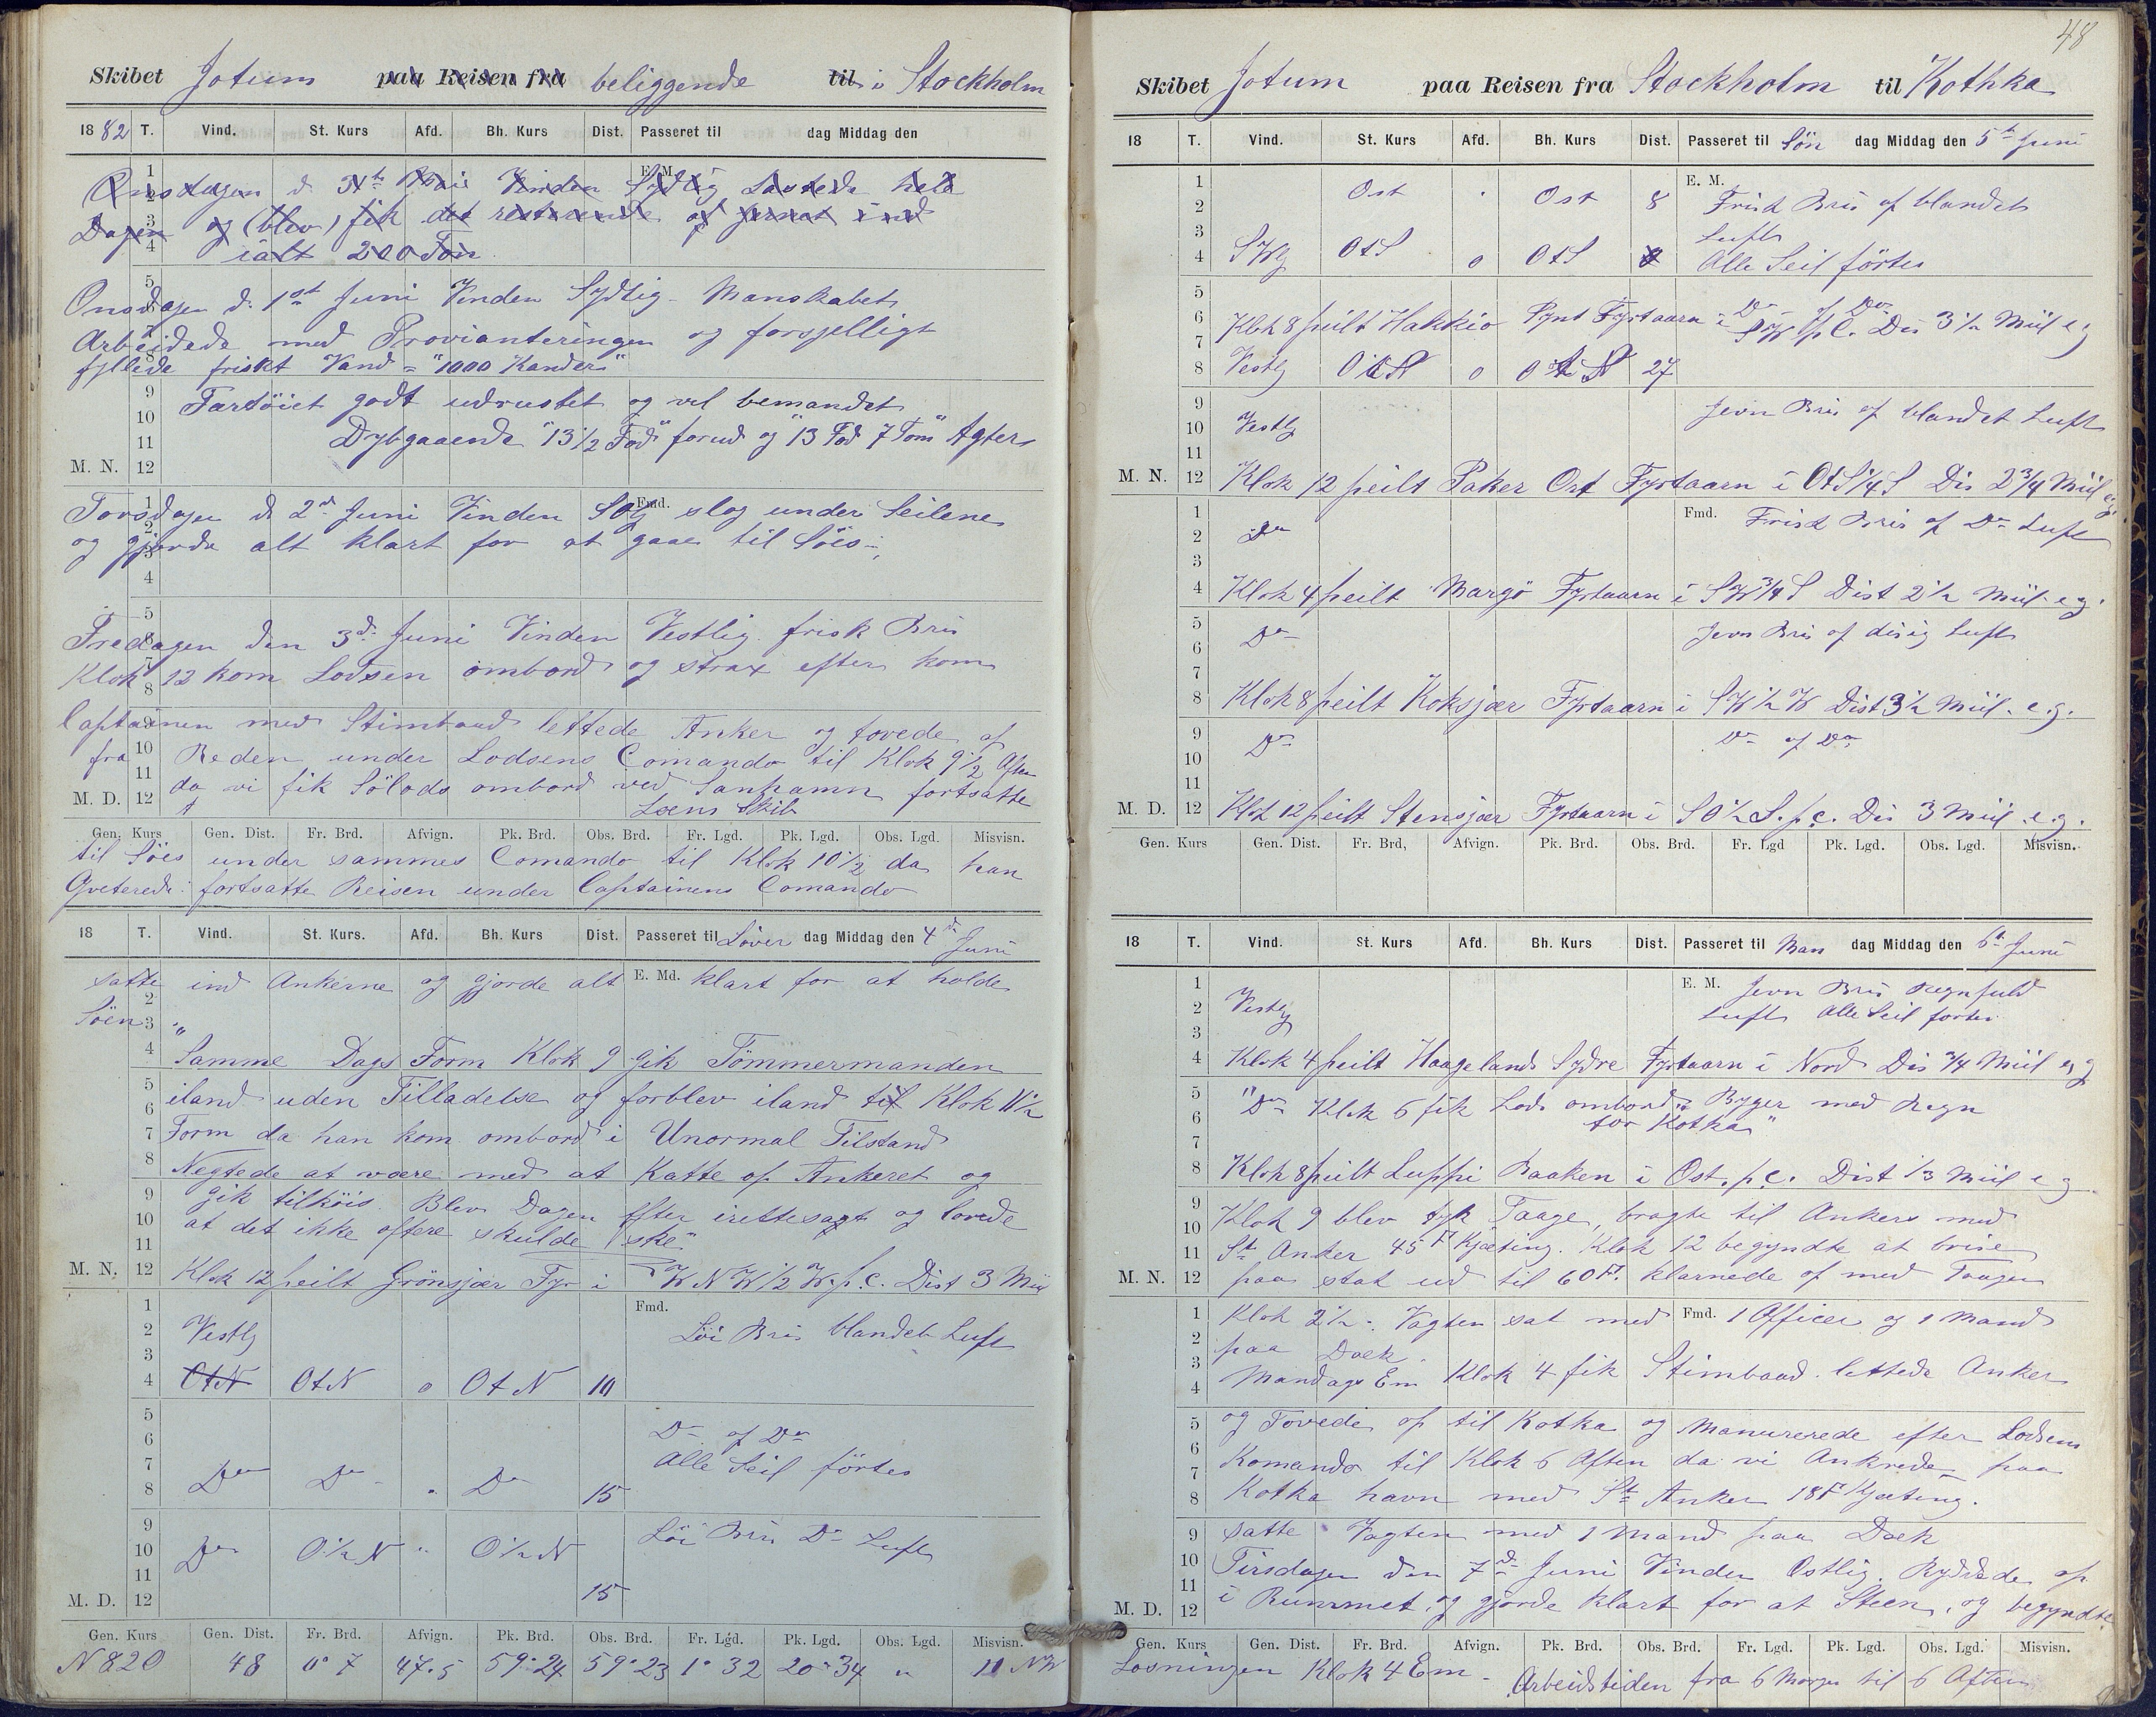 Skibet Jotum paa Reisen fra beliggende til i Stockholm
1882 T. Vind. St. Kurs Afd. Bh. Kurs Dist. Passeret til dag Middag den
E. M.
Onsdagen d. 31te Mai Vinden Sydlig Lastede hele
Dagen og (blev) fik det resterende af Jernet ind
ialt 200 Ton
Onsdagen d. 1st Juni Vinden Sydlig - Manskabet
Arbeidede med Provianteringen og forsjelligt
fyllede friskt Vand = "1000 Kander"
Fartöiet godt udrustet og vel bemandet
Dybgaaende "13 1/2 Fod" forud og "13 Fod 7 Tom" Agter
M. N.
Torsdagen d. 2d Juni Vinden SOlg Fmd. slog under Seilene
og gjorde alt klart for at gaae til Söes
Fredagen den 3d Juni Vinden Vestlig frisk Bris
Klok 12 kom Lodsen ombord og strax efter kom
Captainen med Stimbaad lettede Anker og tovede af
fra Reden under Lodsens Comando til Klok 9 1/2 Aften
M. D. da vi fik Sölods ombord ved Sanhamn fortsatte
Loens Skib
Gen. Kurs Gen. Dist. Fr. Brd. Afvign. Pk. Brd. Obs. Brd. Fr. Lgd. Pk. Lgd. Obs. Lgd. Misvisn.
til Söes under sammes Comando til Klok 10 1/2 da han
Qveterede fortsatte Reisen under Captainens Comando
18 T. Vind. St. Kurs. Afd. Bh. Kurs Dist. Passeret til Löver dag Middag den 4de Juni
satte ind Ankerne og gjorde alt E. Md. klart for at holde
Söen "
Samme Dags Form Klok 9 gik Tömmermanden
iland uden Tilladelse og forblev iland til Klok 11 1/2
Form da han kom ombord i Unormal Tilstand
Negtede at være med at Katte op Ankeret og
gik tilköis. Blev Dagen efter irettesagt og lovede
at det ikke oftere skulde ske"
M. N. 12 Klok 12 peilt Grönsjær Fyr i W N W 1/2 W. p. C. Dist 3 Miil
Fmd.
Vestlg Löi Bris blandet Luft
OtN OtN 0 OtN 10
Do of Do
Alle Seil förtes
Do Do " Do 15
Do O 1/2 N " O 1/2 N Löi Bris Do Luft
15
M. D. 12
Gen. Kurs Gen. Dist. Fr. Brd. Afvign. Pk. Brd. Obs. Brd. Fr. Lgd. Pk. Lgd. Obs. Lgd. Misvisn.
N 82 O 48 0° 7 47.5 59° 24 59° 23 1° 32 20° 34 " 11 NW
48
Skibet Jotum paa Reisen fra Stockholm til Kothka
18 T. Vind. St. Kurs Afd. Bh. Kurs Dist. Passeret til Sön dag Middag den 5te Juni
E. M.
Ost " Ost 8 Frisk Bris of blandet
Luft
SWlg OtS 0 OtS 8 Alle Seil förtes
Do of Do
Klok 8 peilt Hakkio Pynt Fyrtaarn i SW p C. Dis 3 1/2 Miil e g
Vestlg OtN 0 OtN 27
Vestlg Jevn Bris of blandet Luft
M. N. 12 Klok 12 peilt Paker Ort Fyrtaarn i OtS 1/4 S Dis 2 3/4 Miil e g.
Do Fmd. Frisk Bris of Do Luft
Klok 4 peilt Margö Fyrtaarn i SW 3/4 S Dist 2 1/2 Miil e g.
Do Jevn Bris of disig Luft
Klok 8 peilt Koksjær Fyrtaarn i SW 1/2 W Dist 3 1/2 Miil. e. g.
Do Do of Do
M. D. 12 Klok 12 peilt Stensjær Fyrtaarn i SO 1/2 S. p. c. Dis 3 Miil. e. g.
Gen. Kurs Gen. Dist. Fr. Brd, Afvign. Pk. Brd. Obs. Brd. Fr. Lgd Pk. Lgd. Obs. Lgd. Misvisn.
18 T. Vind. St. Kurs Afd. Bh. Kurs Dist. Passeret til Man dag Middag den 6te Juni
E. M. Jevn Bris Regnfuld
Vestlg Luft Alle Seil förtes
Klok 4 peilt Haageland Sydre Fyrtaarn i Nord Dis 3/4 Miil e g
" Do Klok 6 fik Lods ombord Byger med Regn
for Kotka"
Klok 8 peilt Luppi Baaken i Ost. p. c. Dist 1/3 Miil e g
Klok 9 blev tyk Taage, bragte til Ankers med
St. Anker 45 F Kjæting. Klok 12 begyndte at brise
M. N. 12 paa stak ud til 60 F. klarnede of med Taagen
Klok 2 1/2 Vagten sat med Fmd. 1 Officer og 1 Mand
paa Dæk.
Mandags Em Klok 4 fik Stimbaad. lettede Anker
og Tovede op til Kotka og Manurerede efter Lodsens
Komando til Klok 6 Aften da vi Ankrede paa
Kotka havn med St Anker 18 F Kjæting.
satte Vagten med 1 Mand paa Dæk
Tirsdagen den 7d Juni Vinden Ostlig. Ryddede op
M. D. i Rummet, og gjorde klart for at Steen, og begyndte
Gen. Kurs Gen. Dist. Fr. Brd. Afvign. Pk. Brd. Obs. Brd. Fr. Lgd. Pk. Lgd. Obs. Lgd. Misvisn.
Losningen Klok 4 Em - Arbeidstiden fra 6 Morgen til 6 Aften